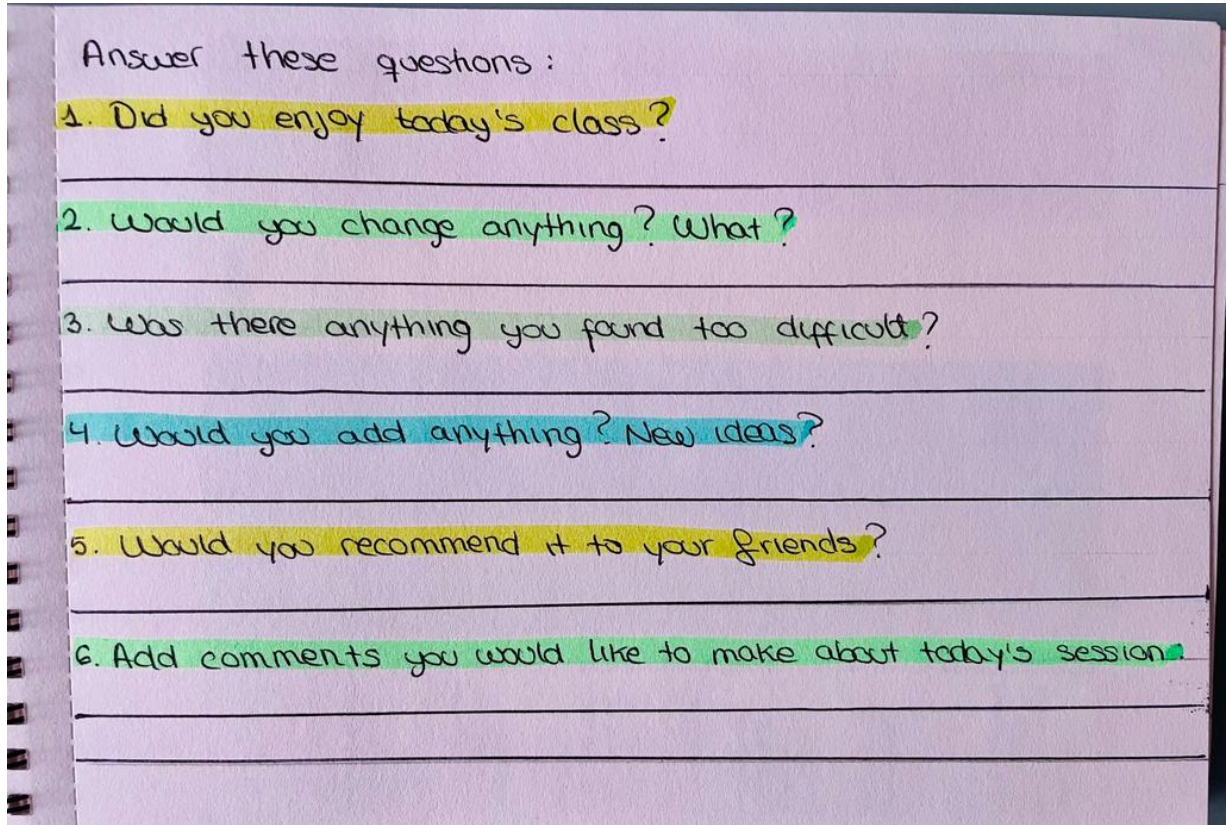 Answer these questions:
1. Did you enjoy today's class?
2. Would you change anything? What?
3. Was there anything you found too difficult?
4. Would you add anything? New ideas?
5. Would you recommend it to your friends?
6. Add comments you would like to make about today's session.